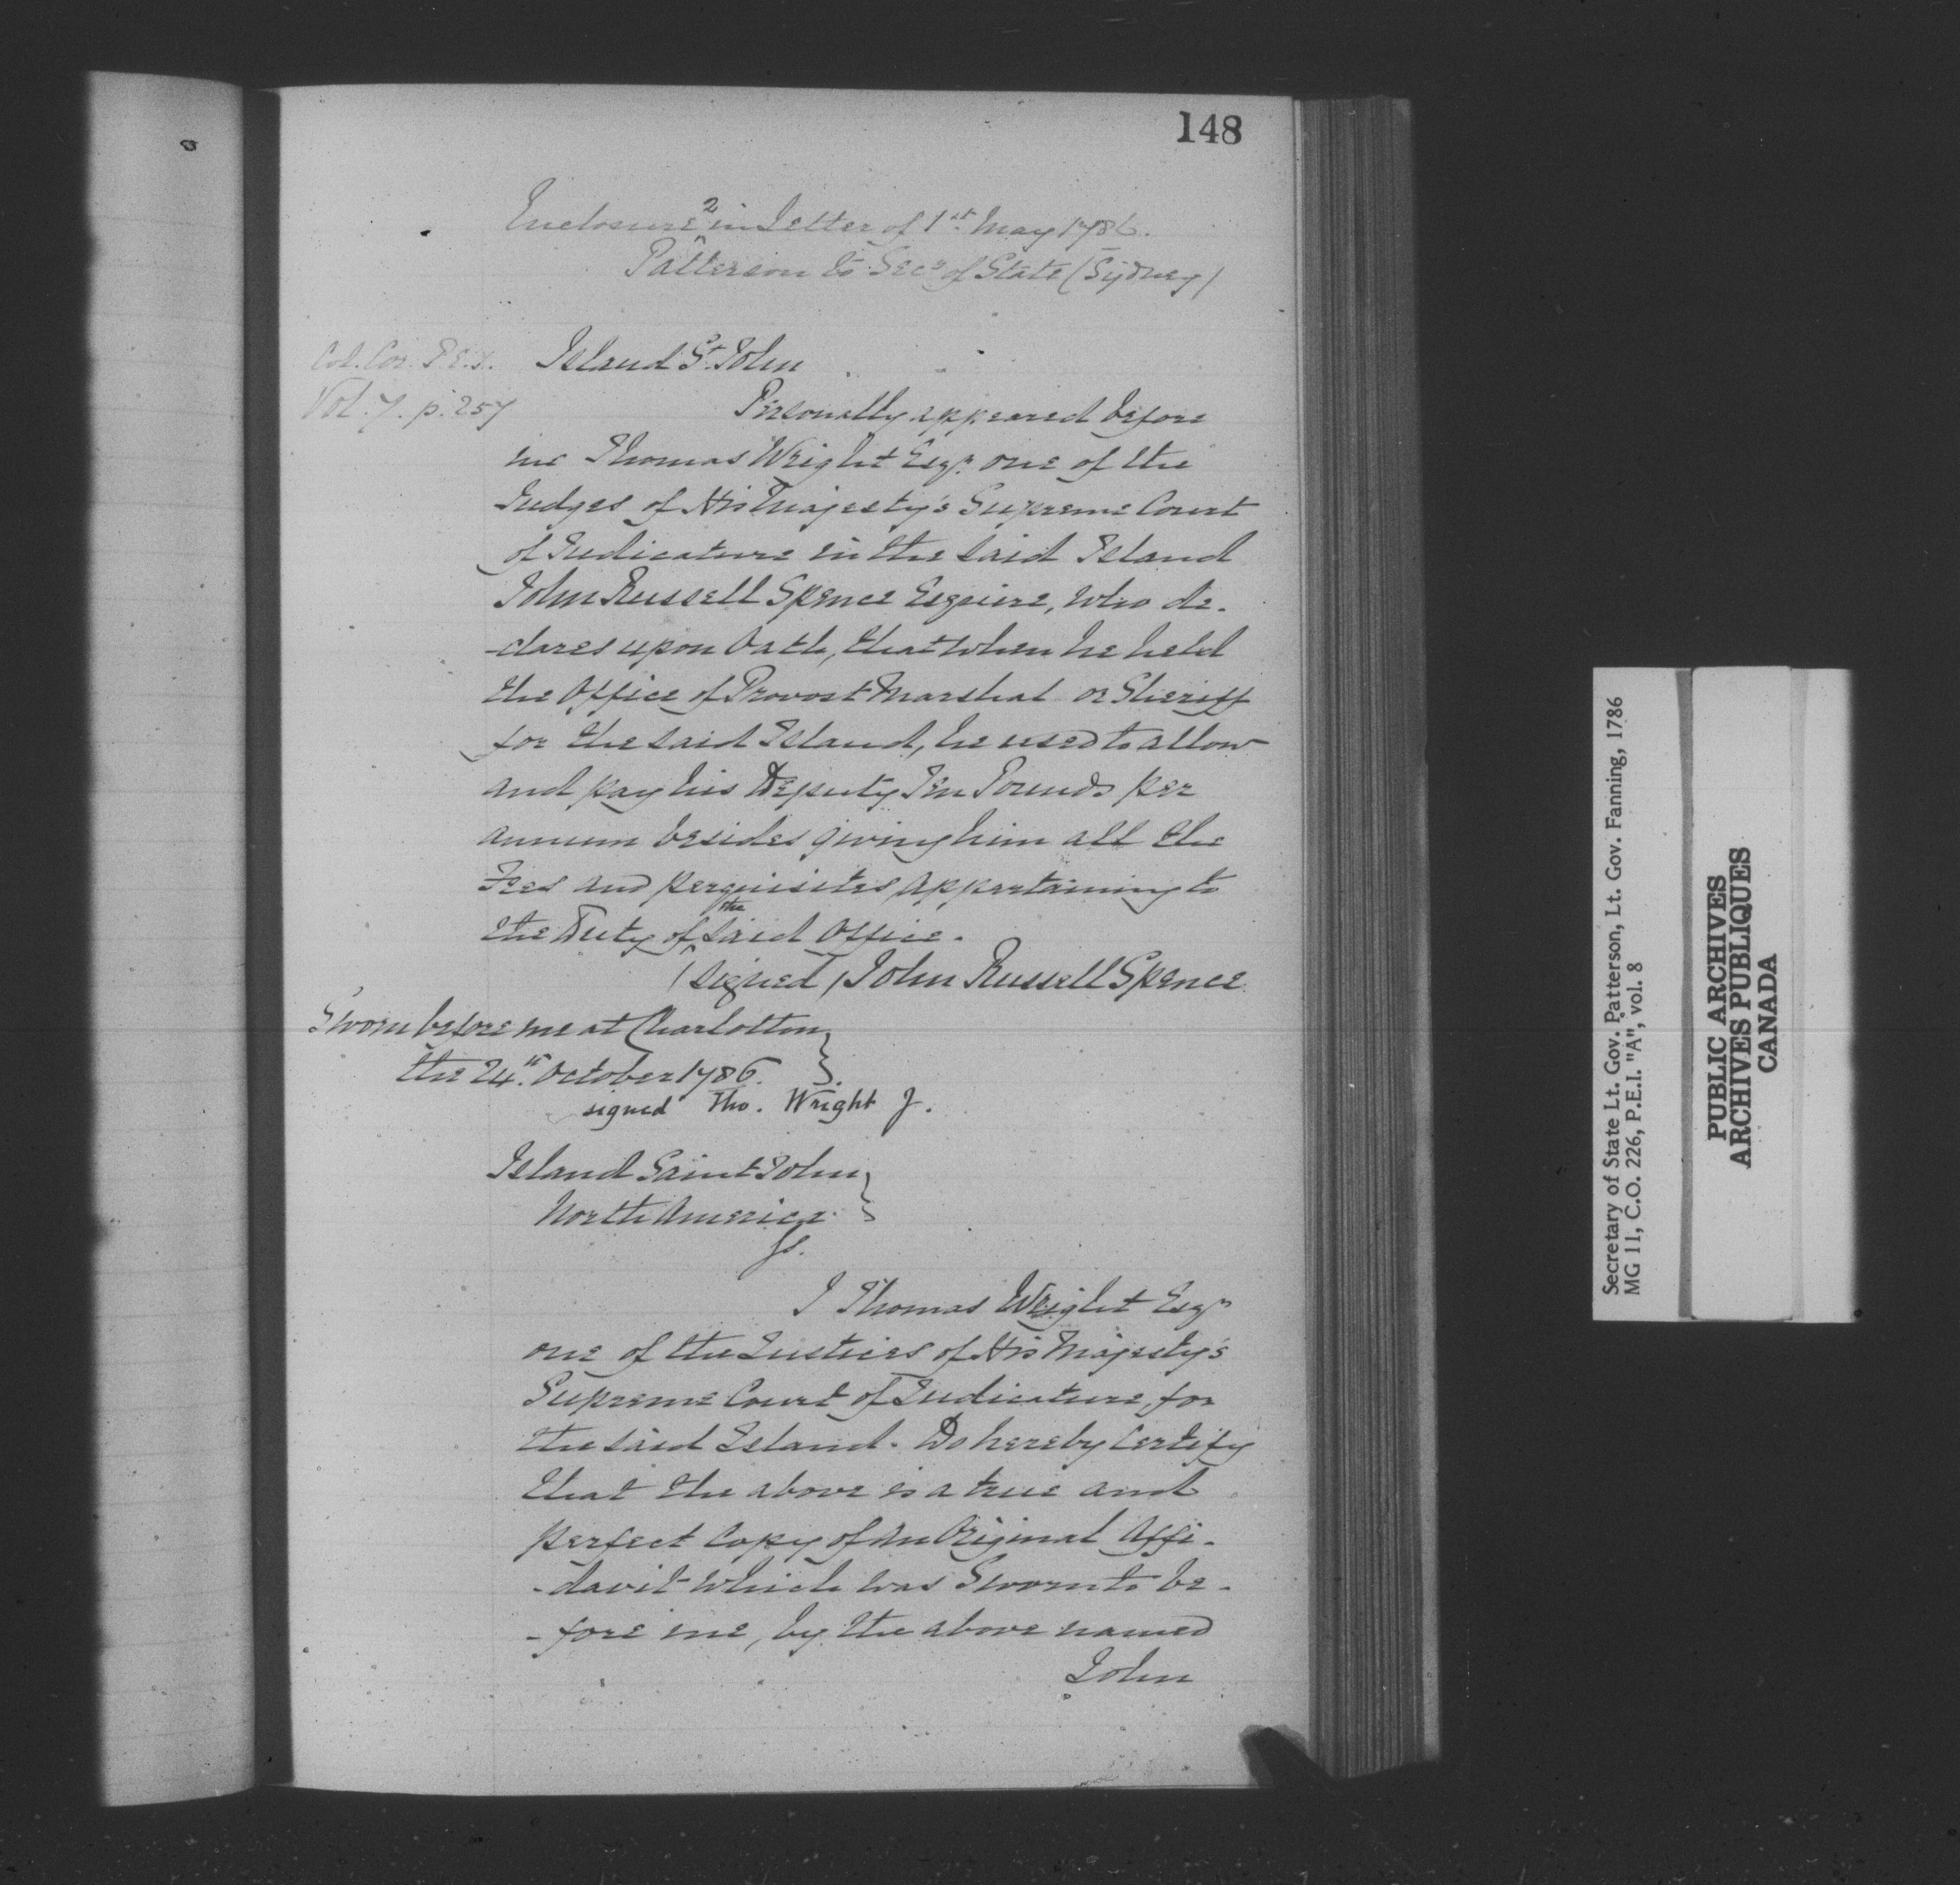 148
Enclosure 2 in Letter of 1st May 1786.
Patterson to Secy of State (Sydney)
Col. Cor. P.E.I.
Vol. 7. p. 257
Island St. John
Personally appeared before
me Thomas Wright Esqr. one of the
Judges of His Majesty's Supreme Court
of Judicature in the said Island
John Russell Spence Esquire, who de-
-clares upon Oath, that when he held
the Office of Provost Marshal or Sheriff
for the said Island, he used to allow
and pay his Deputy Ten Pounds per
annum besides giving him all the
Fees and perquisites appertaining to
the Duty of the said Office.
(signed) John Russell Spence
Sworn before me at Charlotton
the 24th. October 1786.
signed Tho. Wright J.
Island Saint John
North America
Ss.
I Thomas Wright Esqr
one of the Justices of His Majesty's
Supreme Court of Judicature, for
the said Island. Do hereby Certify
that the above is a true and
perfect Copy of an Original Affi-
-davit which was Sworn to be-
-fore me, by the above named
John
Secretary of State Lt. Gov. Patterson, Lt. Gov. Fanning, 1786
MG 11, C.O. 226, P.E.I. "A", vol. 8
PUBLIC ARCHIVES
ARCHIVES PUBLIQUES
CANADA